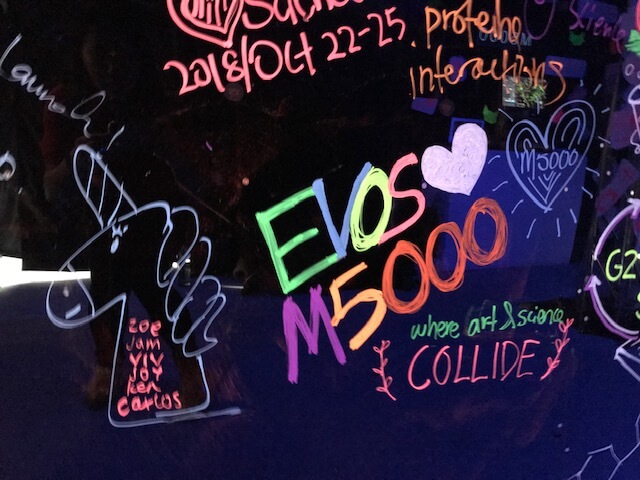 2018/Oct 22-25
proteine
interactions
Science
M5000
EVOS
M5000
where art & science
COLLIDE
zoe
Jam
YIY
JOY
Ken
carlos